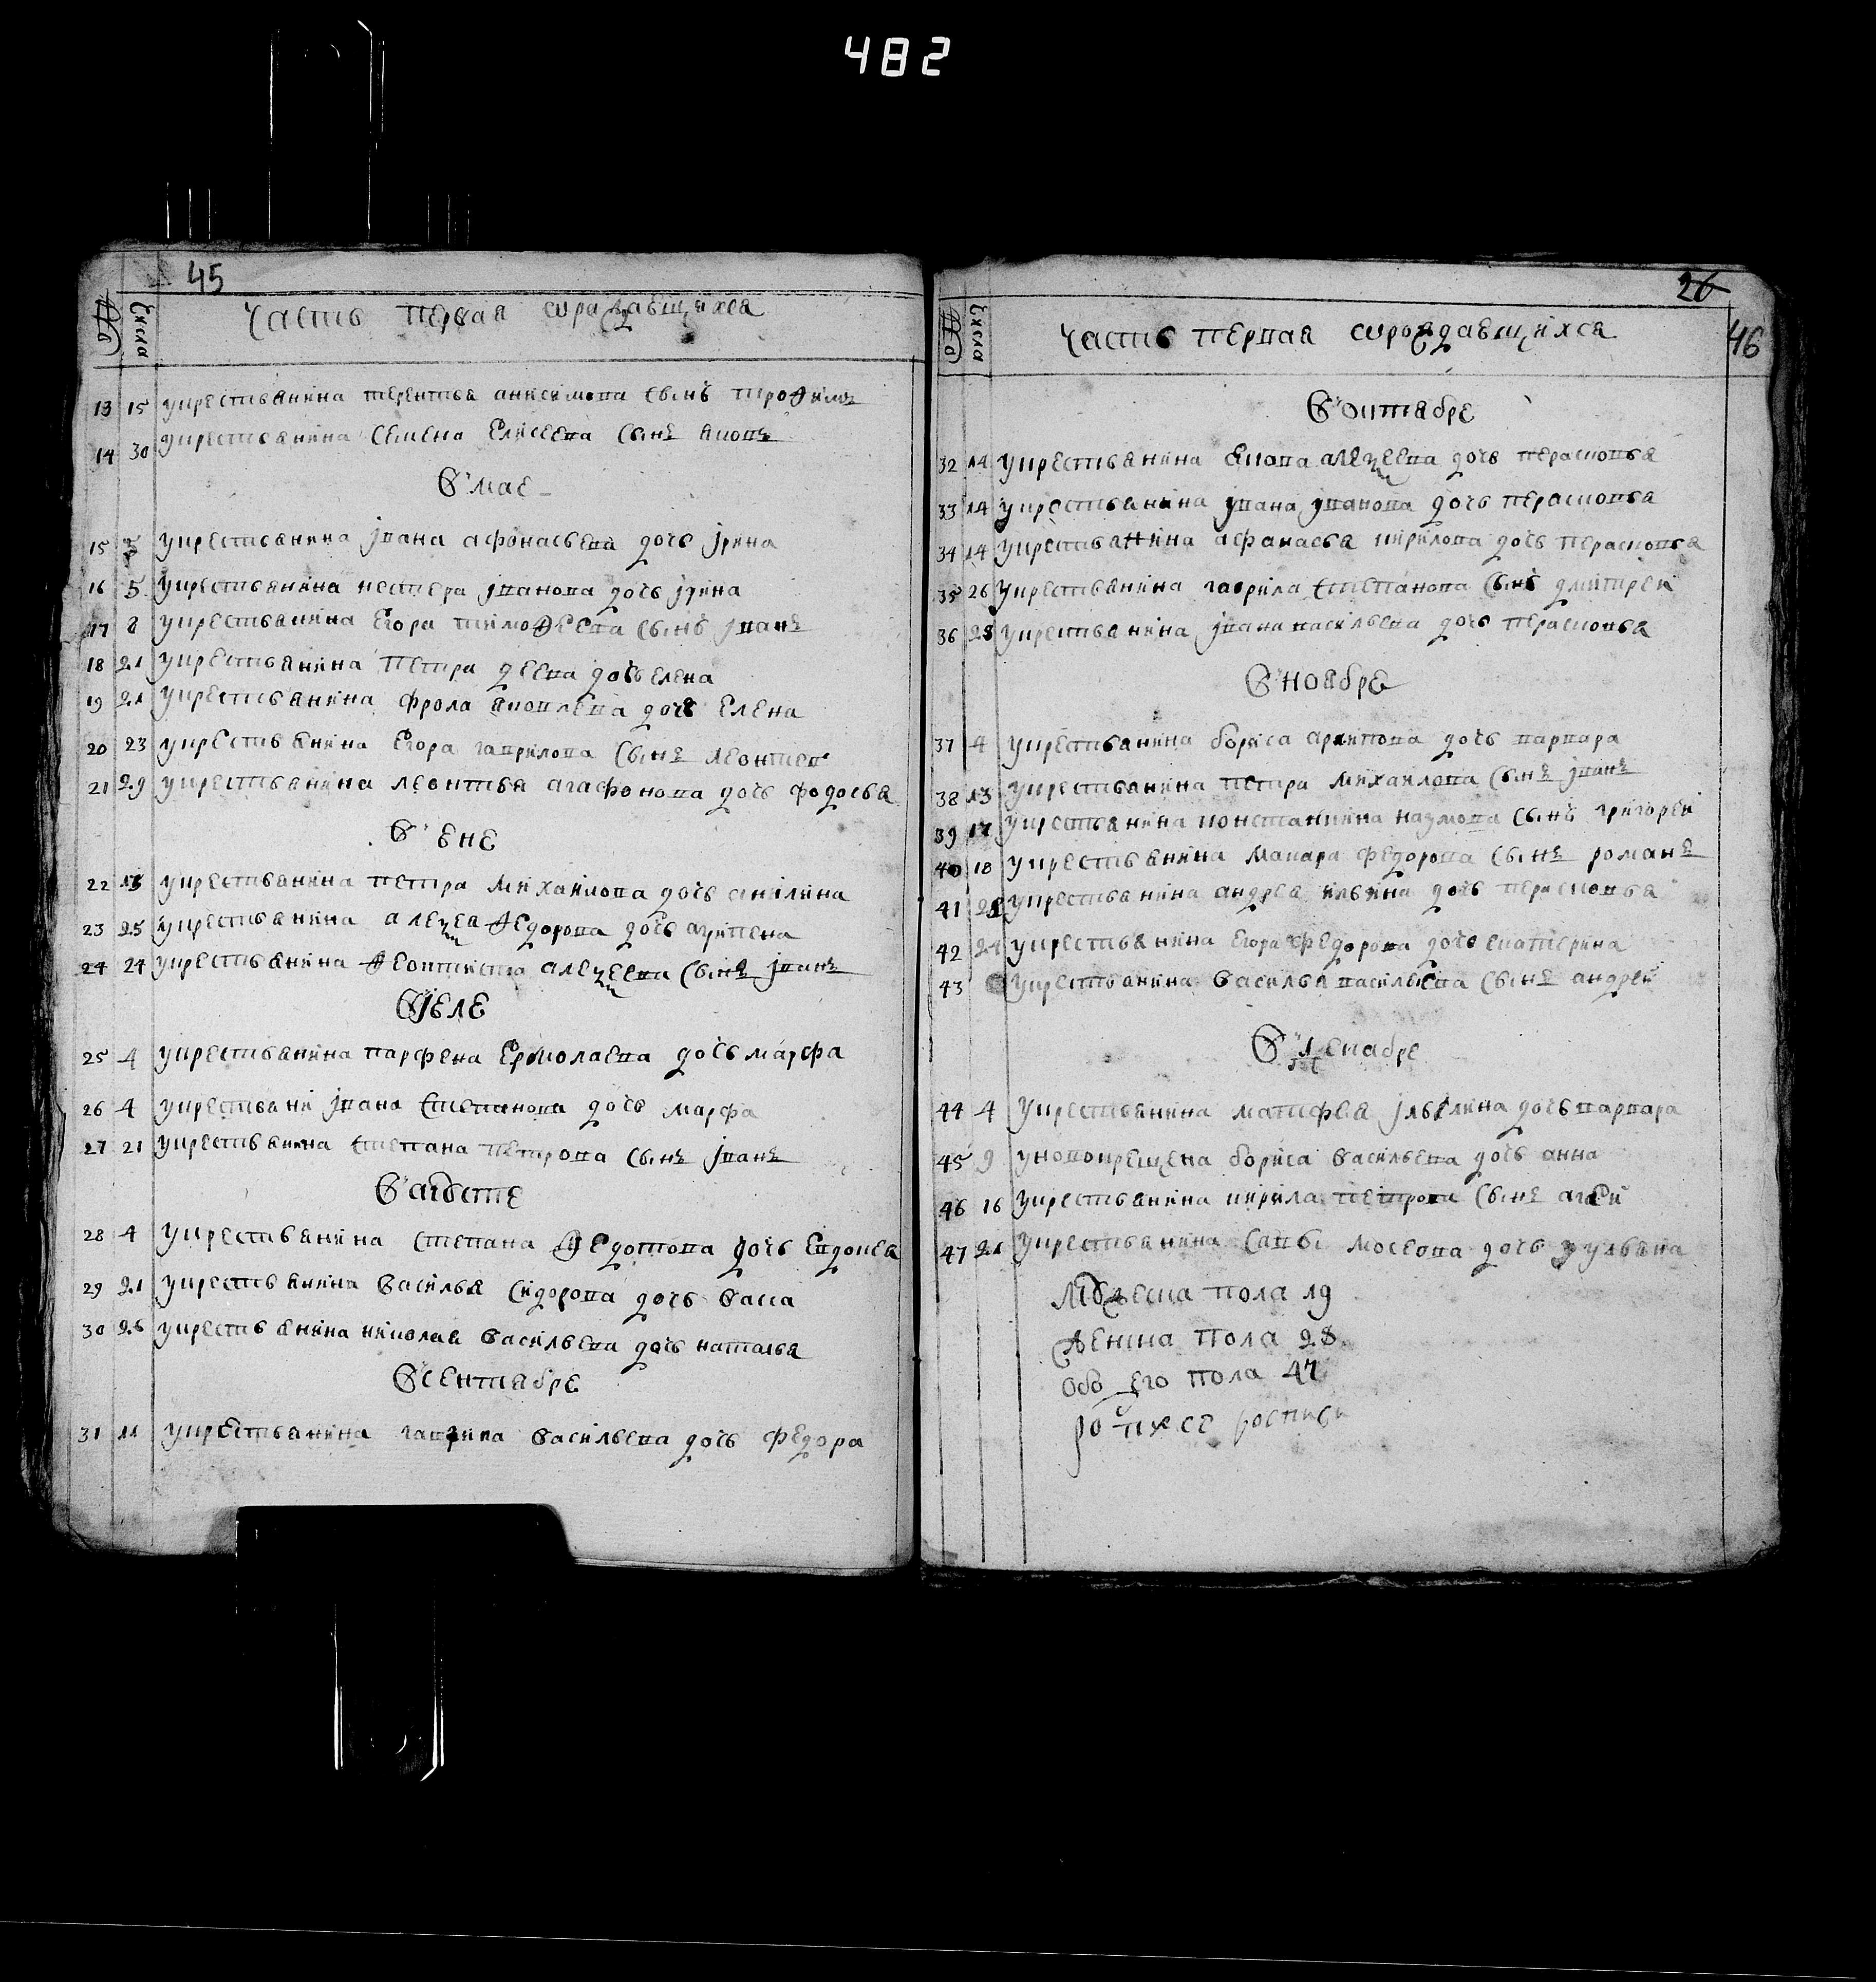 482
45
№ Числа Часть первая ѡражdавшихся
13 15 укрестьянина терентья анисимова сынъ трофимъ
14 30 укрестьянина семена елисеева сынъ яковъ
В мае
15 5 укрестьянина јвана афонасьева дочь јрина
16 5 укрестьянина нестера јванова дочь јрина
17 8 укрестьянина Егора тимофеева сынъ јванъ
18 21 укрестьянина петра деева дочь елена
19 21 укрестьянина фрола яковлева дочь Елена
20 23 укрестьянина Егора гаврилова сынъ леонтеи
21 29 укрестьянина леонтья агафонова дочь федосья
В юне
22 13 укрестьянина петра михаилова дочь акилина
23 23 укрестьянина алеѯея федорова дочь агрипена
24 24 укрестьянина феоктиста алеѯеева сынъ јванъ
В јюле
25 4 укрестьянина парфена Ермолаева дочь марфа
26 4 укрестьяни јвана степанова дочь марфа
27 21 укрестьянина степана петрова сынъ јванъ
В августе
28 4 укрестьянина степана федотова дочь Евдокея
29 21 укрестьянина василья сидорова дочь васса
30 26 укрестьянина николая васильева дочь наталья
В сентябре
31 11 укрестьянина гаврила васильева дочь федора
26
46
№ Числа Часть первая ѡрождавшихся
В октябре
32 14 укрестьянина якова алеѯеева дочь перасковья
33 14 укрестьянина јвана јванова дочь перасковья
34 14 укрестьянина афанасья кирилова дочь перасковья
35 26 укрестьянина гаврила степанова сынъ дмитреи
36 28 укрестьянина јвана васильева дочь перасковья
В ноябре
37 4 укрестьянина бориса архипова дочь варвара
38 13 укрестьянина петра михаилова сынъ јванъ
39 17 укрестьянина константина наумова сынъ григореи
40 18 укрестьянина макара федорова сынъ романъ
41 21 укрестьянина андрея ильина дочь пераковья
42 24 укрестьянина Егора федорова дочь екатерина
43 укрестьянина василья васильева сынъ андреи
В декабре
44 4 укрестьянина матефея дочь варвара
45 9 уновокрещена бориса васильева дочь анна
46 16 укрестьянина кирила петрова сынъ агѣи
47 21 укрестьянина савы мосеева дочь ульяна
Мужеска пола 19
женска пола 28
обоего пола 47